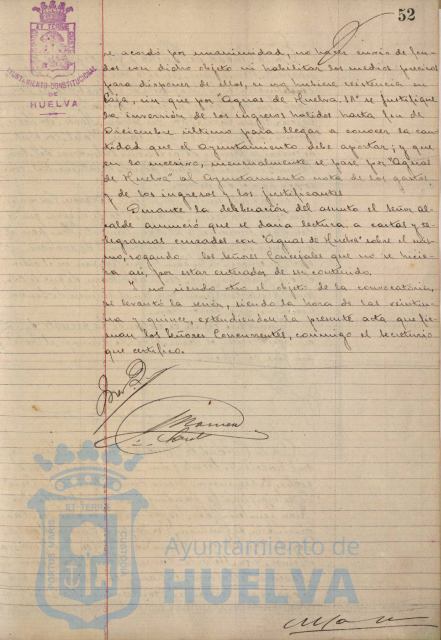 52
AYUNTAMIENTO CONSTITUCIONAL
DE
HUELVA
se acordó por unanimidad, no hacer envio de fon-
dos con dicho objeto ni habilitar los medios precisos
para disponer de ellos, si no hubiese existencia en
Caja, sin que por "Aguas de Huelva. SA" se justifique
la inversión de los ingresos habidos hasta fin de
Diciembre último para llegar a conocer la can-
tidad que el Ayuntamiento debe aportar; y que
en lo sucesivo, mensualmente se pase por "Aguas
de Huelva" al Ayuntamiento nota de los gastos
y de los ingresos y los justificantes
Durante la deliberación del asunto el señor al-
calde anunció que se daria lectura, a cartas y te-
legramas cruzados con "Aguas de Huelva" sobre el mis-
mo, rogando los Señores Concejales que no se hicie-
ra asi, por estar enterados de su contenido.
Y no siendo otro el objeto de la convocatoria,
se levantó la sesión, siendo la hora de las veintiu-
na y quince, extendiendose la presente acta que fir-
man los Señores Concurrentes, conmigo el Secretario
que certifico.
PORTUS MARIS
ET TERRE
CUSTODIA
Ayuntamiento de
HUELVA